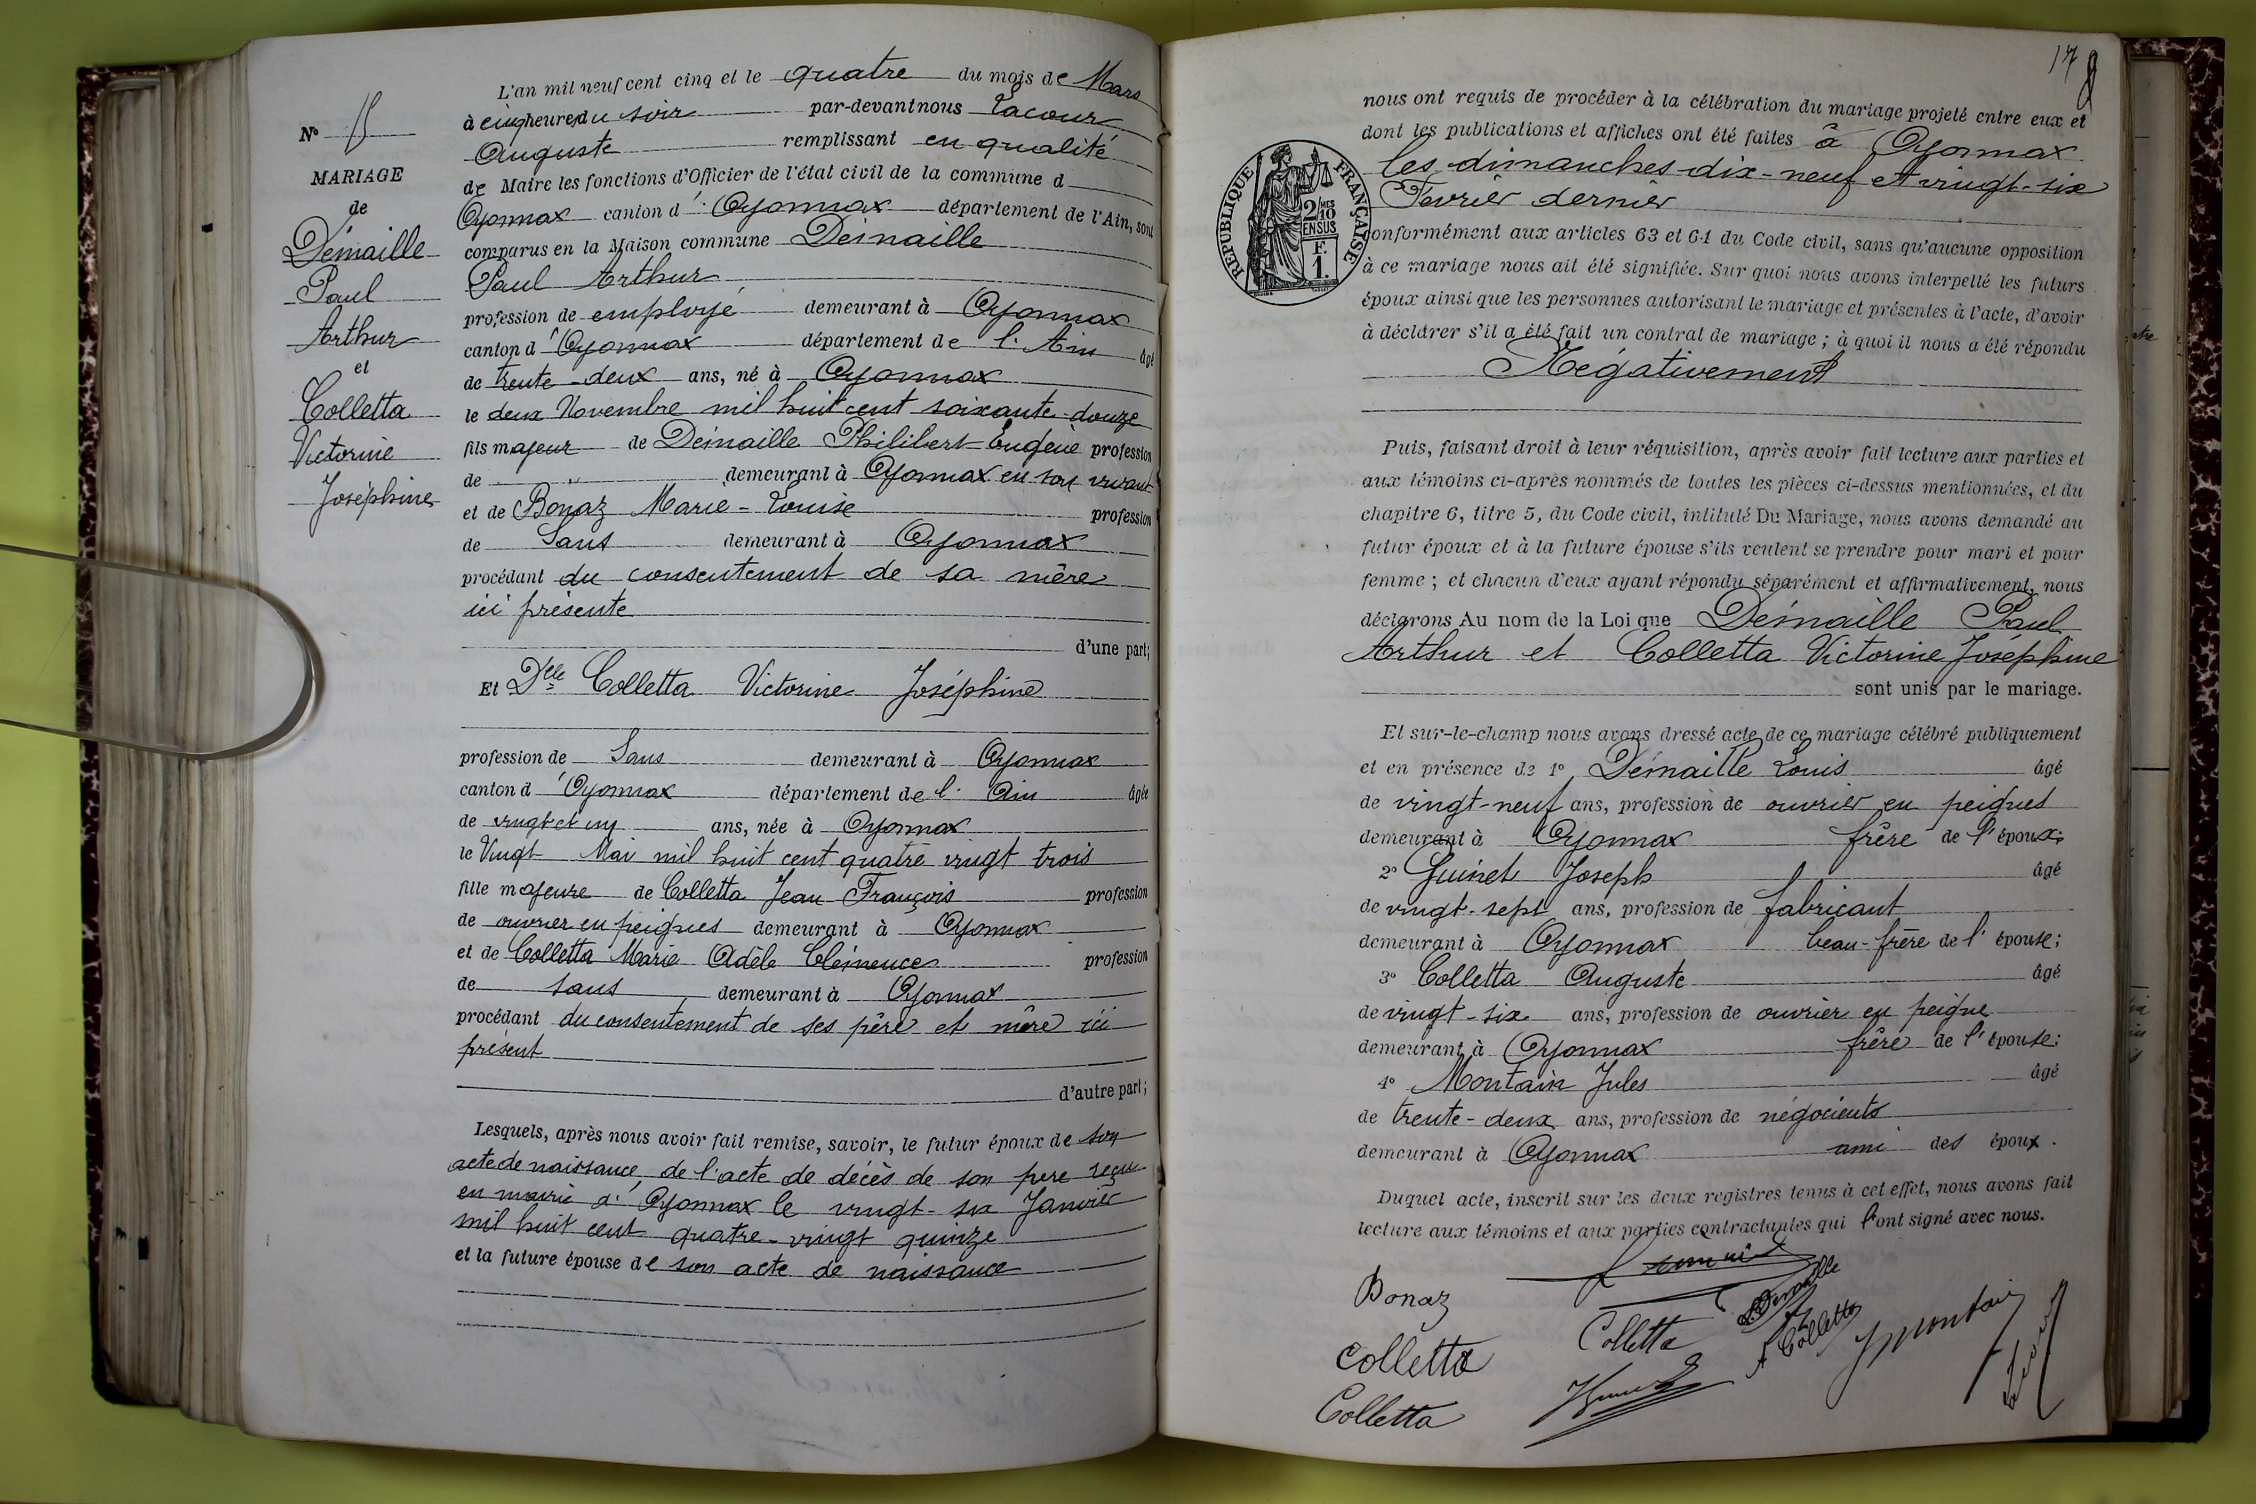 L'an mil neuf cent cinq et le quatre du mois de Mars
à cinq heures du soir par-devant nous Lacour
Auguste remplissant en qualité
de Maire les fonctions d'Officier de l'état civil de la commune d
Oyonnax canton d' Oyonnax département de l'Ain, sont
comparus en la Maison commune Démaille
Paul Arthur
profession de employé demeurant à Oyonnax
canton d' Oyonnax département de l'Ain âgé
de trente-deux ans, né à Oyonnax
le deux Novembre mil huit cent soixante-douze
fils majeur de Démaille Philibert-Eugène profession
de demeurant à Oyonnax en son vivant
et de Bonaz Marie-Louise profession
de Sans demeurant à Oyonnax
procédant du consentement de sa mère
ici présente
d'une part;
Et Delle Colletta Victorine Joséphine
profession de Sans demeurant à Oyonnax
canton d' Oyonnax département de l'Ain âgée
de vingt et un ans, née à Oyonnax
le Vingt Mai mil huit cent quatre vingt trois
fille majeure de Colletta Jean François profession
de ouvrier en peignes demeurant à Oyonnax
et de Colletta Marie Adèle Clémence profession
de sans demeurant à Oyonnax
procédant du consentement de ses père et mère ici
présent
d'autre part;
Lesquels, après nous avoir fait remise, savoir, le futur époux de son
acte de naissance, de l'acte de décès de son père reçu
en mairie d' Oyonnax le vingt-six Janvier
mil huit cent quatre-vingt quinze
et la future épouse de son acte de naissance
N°
MARIAGE
de
Démaille
Paul
Arthur
et
Colletta
Victorine
Joséphine
17
nous ont requis de procéder à la célébration du mariage projeté entre eux et
dont les publications et affiches ont été faites à Oyonnax
les dimanches dix-neuf et vingt-six
Fevrier dernier
conformément aux articles 63 et 64 du Code civil, sans qu'aucune opposition
à ce mariage nous ait été signifiée. Sur quoi nous avons interpellé les futurs
époux ainsi que les personnes autorisant le mariage et présentes à l'acte, d'avoir
à déclarer s'il a été fait un contrat de mariage ; à quoi il nous a été répondu
Négativement
RÉPUBLIQUE FRANÇAISE
2/10MES
EN SUS
F.
1.
Puis, faisant droit à leur réquisition, après avoir fait lecture aux parties et
aux témoins ci-après nommés de toutes les pièces ci-dessus mentionnées, et du
chapitre 6, titre 5, du Code civil, intitulé Du Mariage, nous avons demandé au
futur époux et à la future épouse s'ils veulent se prendre pour mari et pour
femme ; et chacun d'eux ayant répondu séparément et affirmativement, nous
déclarons Au nom de la Loi que Démaille Paul
Arthur et Colletta Victorine Joséphine
sont unis par le mariage.
Et sur-le-champ nous avons dressé acte de ce mariage célébré publiquement
et en présence de 1° Démaille Louis âgé
de vingt-neuf ans, profession de ouvrier en peignes
demeurant à Oyonnax frère de l'époux;
2° Guinet Joseph âgé
de vingt-sept ans, profession de fabricant
demeurant à Oyonnax beau-frère de l'épouse;
3° Colletta Auguste âgé
de vingt-six ans, profession de ouvrier en peigne
demeurant à Oyonnax frère de l'épouse;
4° Montain Jules âgé
de trente-deux ans, profession de négocients
demeurant à Oyonnax ami des époux.
Duquel acte, inscrit sur les deux registres tenus à cet effet, nous avons fait
lecture aux témoins et aux parties contractantes qui l'ont signé avec nous.
Bonaz
Colletta
Colletta
Colletta
A Colletta
J Montain